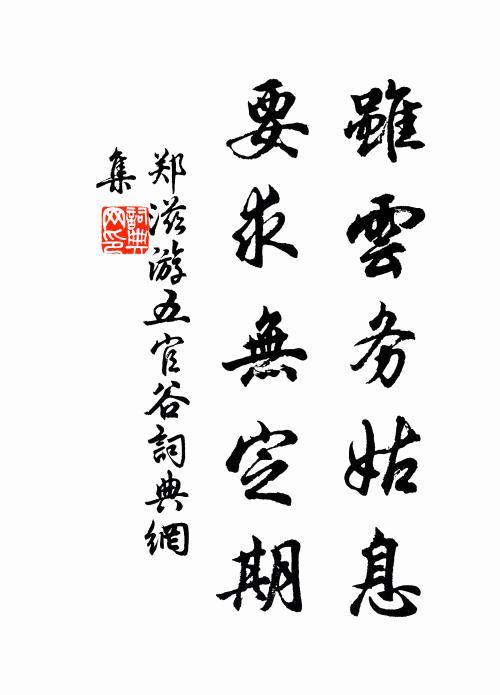 雖雲务姑息
要求無定期
郑滋游五官谷詞典網
集
詞典网印